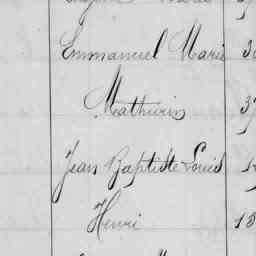 Emmanuel Marie 3
Mathurin 3
Jean Baptiste Louis
Henri 13